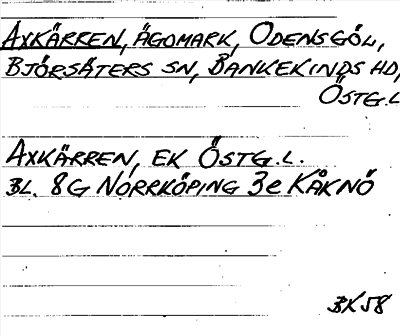 AXKÄRREN, ÄGOMARK, ODENSGÖL,
BJÖRSÄTERS SN, BANKEKINDS HD,
ÖSTG.L
AXKÄRREN, EK ÖSTG.L.
BL. 8G NORRKÖPING 3e KÅKNÖ
BX58